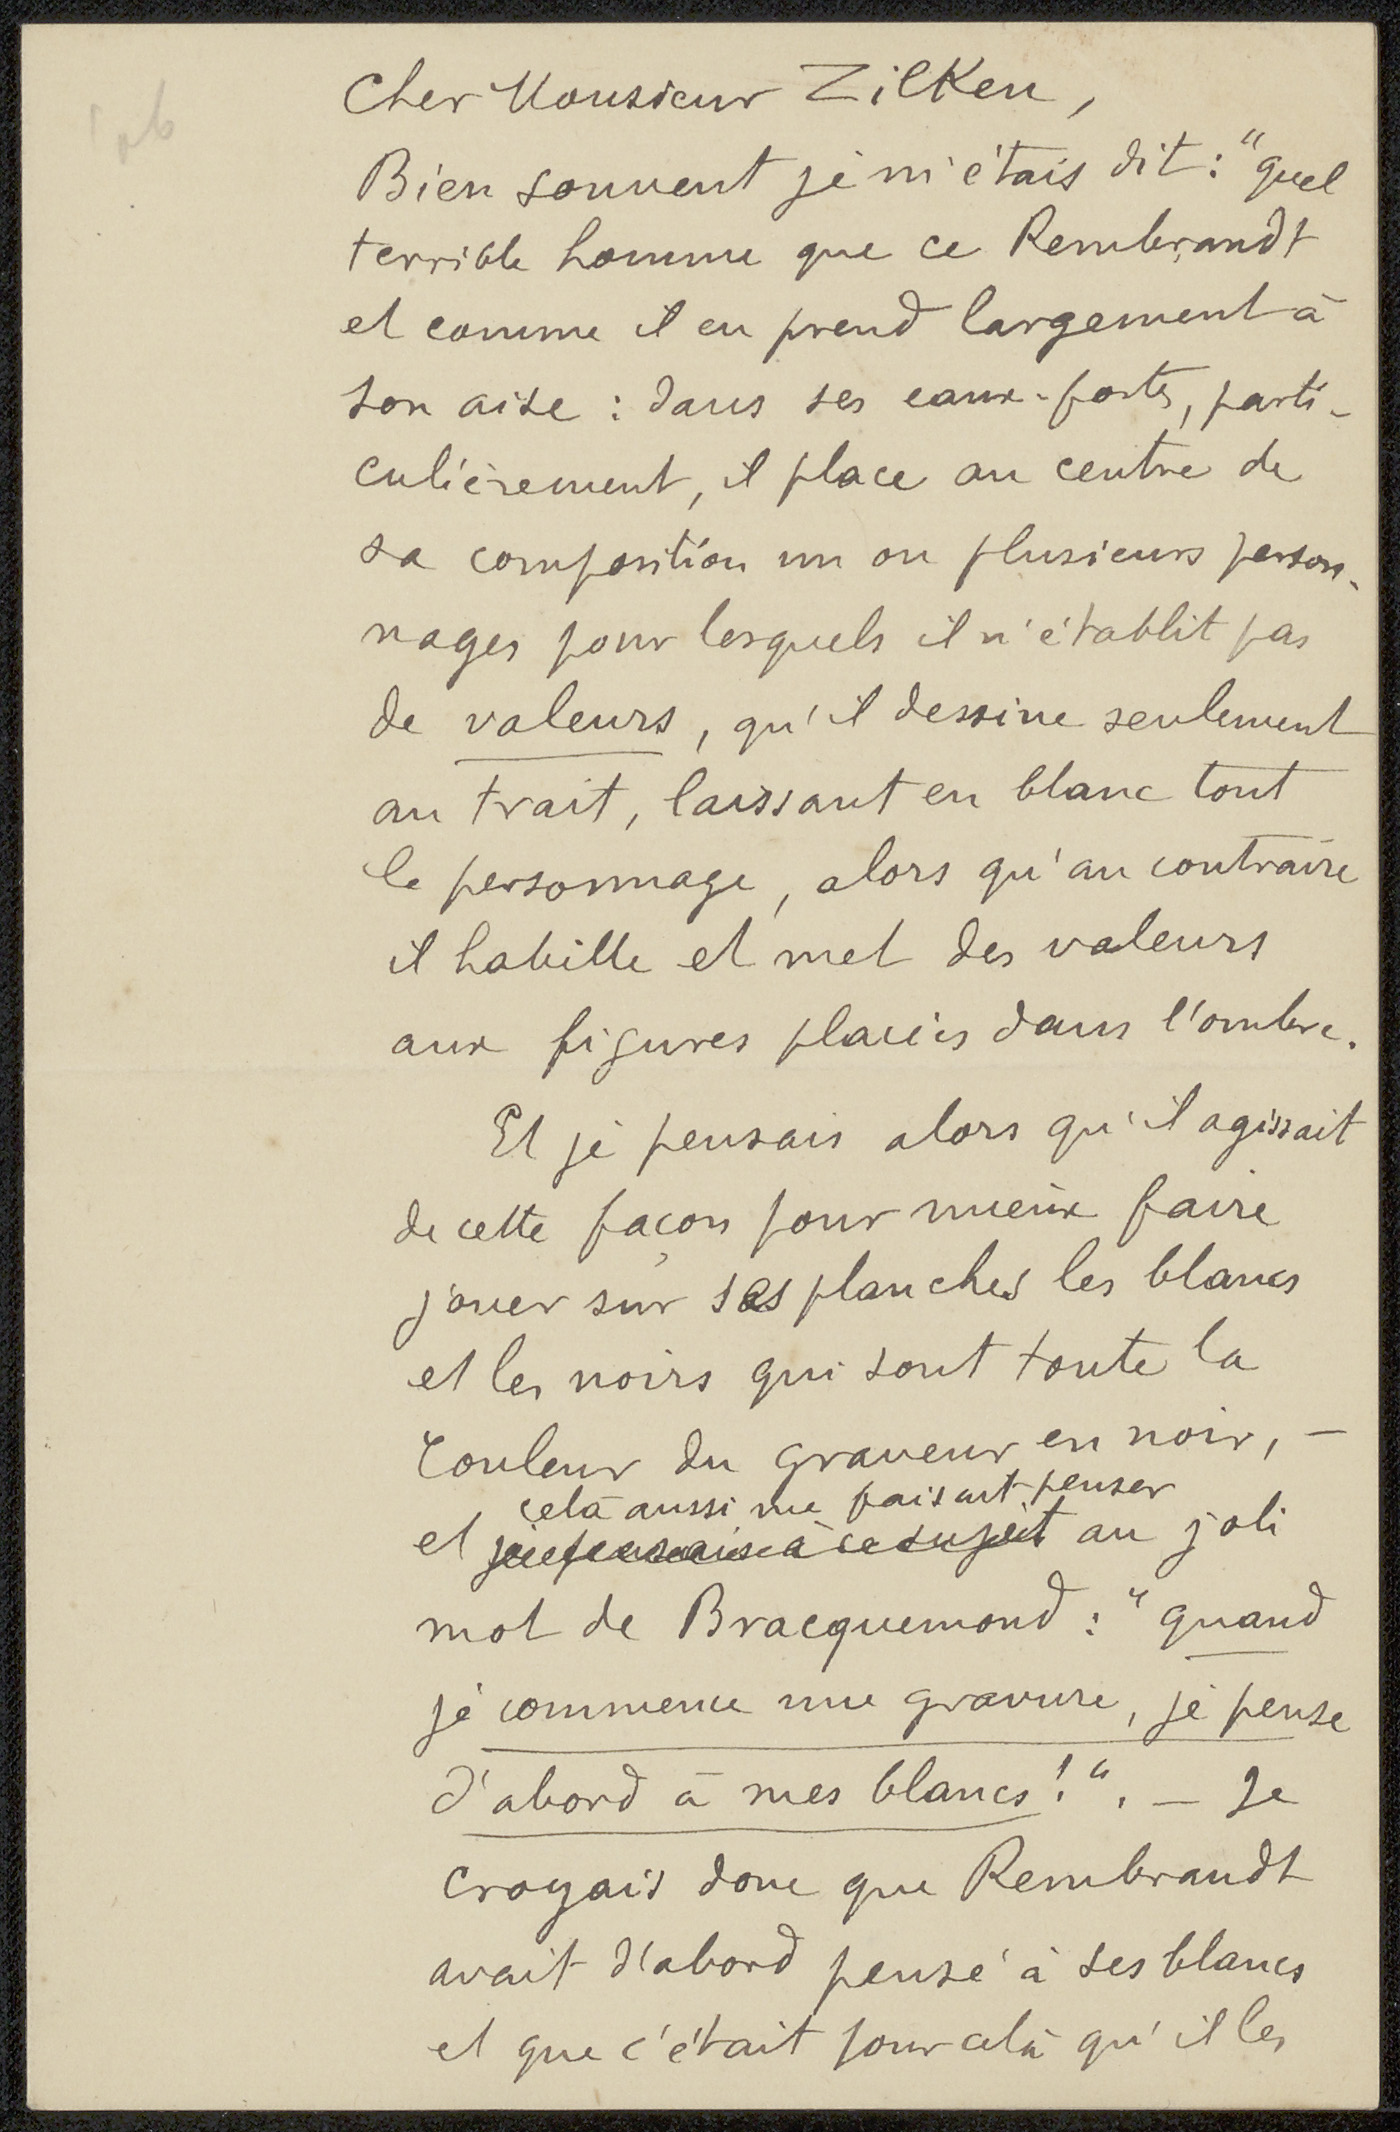 Cher Monsieur Zilken,
Bien souvent je m'étais dit : "quel
terrible homme que ce Rembrandt
et comme il en prend largement à
son aise : dans ses eaux-fortes, parti-
culièrement, il place au centre de
sa composition un ou plusieurs person-
nages pour lesquels il n'établit pas
de valeurs, qu'il dessine seulement
au trait, laissant en blanc tout
le personnage, alors qu'au contraire
il habille et met des valeurs
aux figures placées dans l'ombre.
Et je pensais alors qu'il agissait
de cette façon pour mieux faire
jouer sur ses planches les blancs
et les noirs qui sont toute la
couleur du graveur en noir, —
celà aussi me faisait penser
et je pensais à ce sujet au joli
mot de Bracquemond : "quand
je commence une gravure, je pense
d'abord à mes blancs !". — Je
croyais donc que Rembrandt
avait d'abord pensé à ses blancs
et que c'était pour celà qu'il les